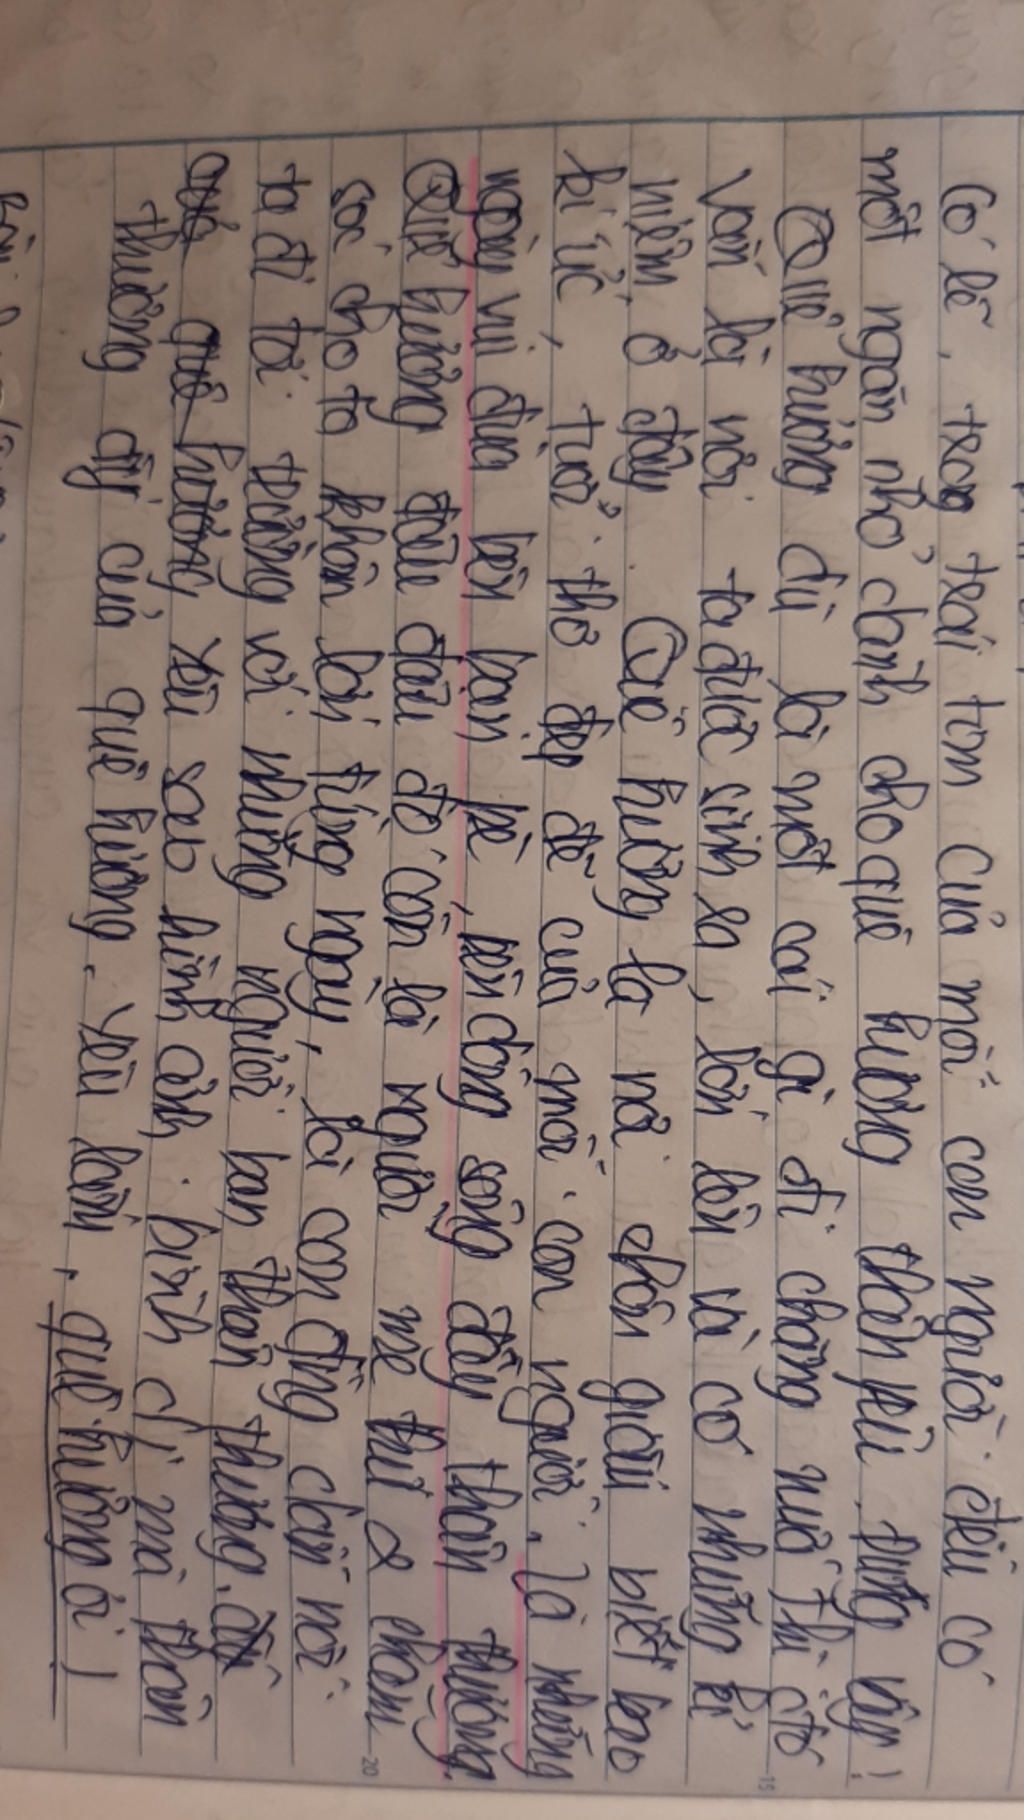 Có lẽ, trong trái tim của mỗi con người đều có
một ngăn nhỏ dành cho quê hương thân yêu. Đúng vậy!
Quê hương dù là một cái gì đi chăng nữa thì đó
vẫn là nơi ta được sinh ra, lớn lên và có những kỉ
niệm, ở đây. Quê hương là nơi chôn giấu biết bao
kí ức, tuổi thơ đẹp đẽ của mỗi con người. Là những
ngày vui đùa bên bạn bè, bên dòng sông đầy thân thương.
Quê hương đâu đâu đó còn là người mẹ thứ 2 chăm
sóc cho ta khôn lớn từng ngày, là con đường dẫn nối
ta đi tới trường với những người bạn thân thương.
yêu sao hình ảnh bình dị mà thân
thương ấy của quê hương. Yêu lắm, quê hương ơi!